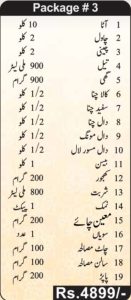 Package # 3
1 آٹا 10 کلو
2 چاول 2 کلو
3 چینی 2 کلو
4 تیل 900 ملی لیٹر
5 گھی 900 گرام
6 کالا چنا 1/2 کلو
7 سفید چنا 1/2 کلو
8 دال چنا 1/2 کلو
9 دال مونگ 1/2 کلو
10 دال مسور لال 1/2 کلو
11 بیسن 1 کلو
12 کھجور 200 گرام
13 شربت 800 ملی لیٹر
14 نمک 1 پیکٹ
15 معین چائے 200 گرام
16 سویاں 1 عدد
17 چاٹ مصالحہ 100 گرام
18 سالن مصالحہ 100 گرام
19 پاپڑ 200 گرام
Rs.4899/-